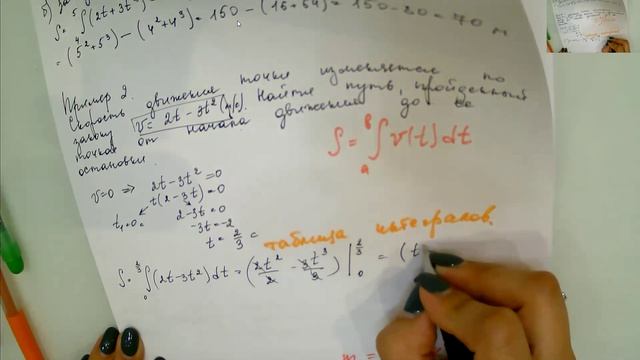 S = ∫(2t+3t²
= (5²+5³) − (4²+4³) = 150 −
м
Пример 2.
Скорость движения точки изменяется по
закону v = 2t − 3t² (м/с). Найти путь, пройденный
точкой от начала движения до ее
остановки.
S = ∫ₐᵇ v(t) dt
v=0 ⇒ 2t−3t²=0
t(2−3t)=0
t₁=0
2−3t=0
−3t=−2
t = 2/3 c
таблица интегралов.
S = ∫₀^(2/3) (2t−3t²) dt = (2t²/2 − 3t³/3) |₀^(2/3) = (t
m =